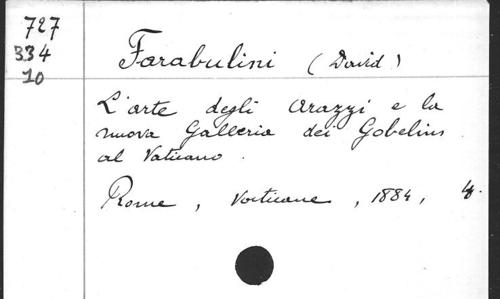 727
334
10
Farabulini (David)
L'arte degli Arazzi e la
nuova Galleria dei Gobelins
al Vaticano.
Rome, Vaticane, 1884, 4°.